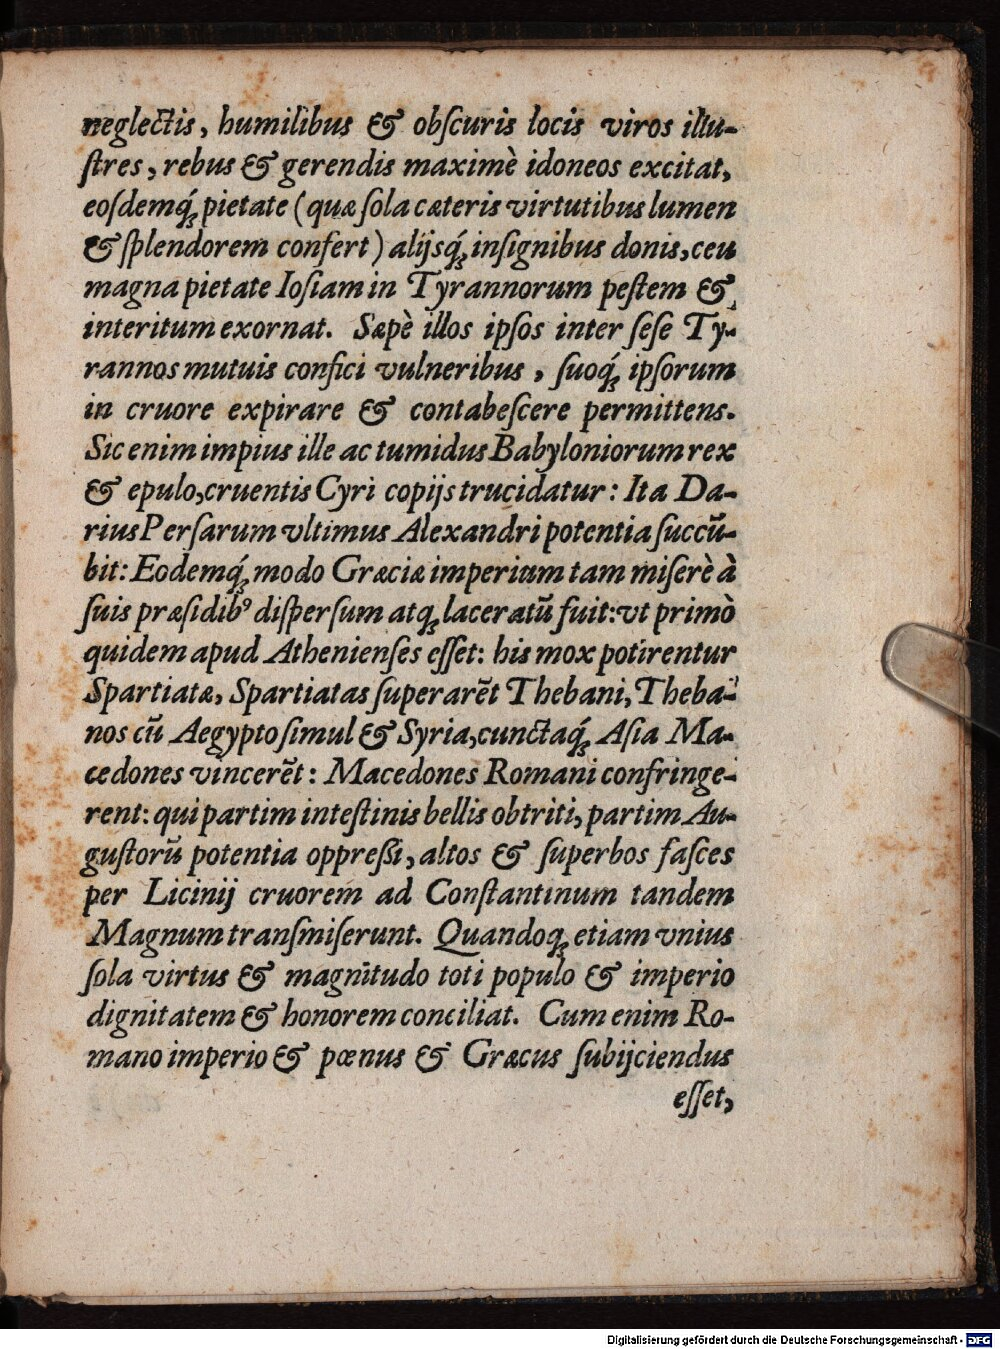 neglectis, humilibus & obſcuris locis viros illu-
ſtres, rebus & gerendis maximè idoneos excitat,
eoſdemq́; pietate (quæ ſola cæteris virtutibus lumen
& ſplendorem confert) alijsq́; inſignibus donis, ceu
magna pietate Ioſiam in Tyrannorum peſtem &
interitum exornat. Sæpè illos ipſos inter ſeſe Ty-
rannos mutuis confici vulneribus, ſuoq́; ipſorum
in cruore expirare & contabeſcere permittens.
Sic enim impius ille ac tumidus Babyloniorum rex
& epulo, cruentis Cyri copijs trucidatur: Ita Da-
rius Perſarum vltimus Alexandri potentia ſuccū-
bit: Eodemq́; modo Græciæ imperium tam miſerè à
ſuis præſidibꝰ diſperſum atq; laceratū fuit: vt primò
quidem apud Athenienſes eſſet: his mox potirentur
Spartiatæ, Spartiatas ſuperarēt Thebani, Theba-
nos cū Aegypto ſimul & Syria, cunctaq́; Aſia Ma-
cedones vincerēt: Macedones Romani confringe-
rent: qui partim inteſtinis bellis obtriti, partim Au-
guſtorū potentia oppreßi, altos & ſuperbos faſces
per Licinij cruorem ad Conſtantinum tandem
Magnum tranſmiſerunt. Quandoq; etiam vnius
ſola virtus & magnitudo toti populo & imperio
dignitatem & honorem conciliat. Cum enim Ro-
mano imperio & pœnus & Græcus ſubijciendus
eſſet,
Digitalisierung gefördert durch die Deutsche Forschungsgemeinschaft - DFG